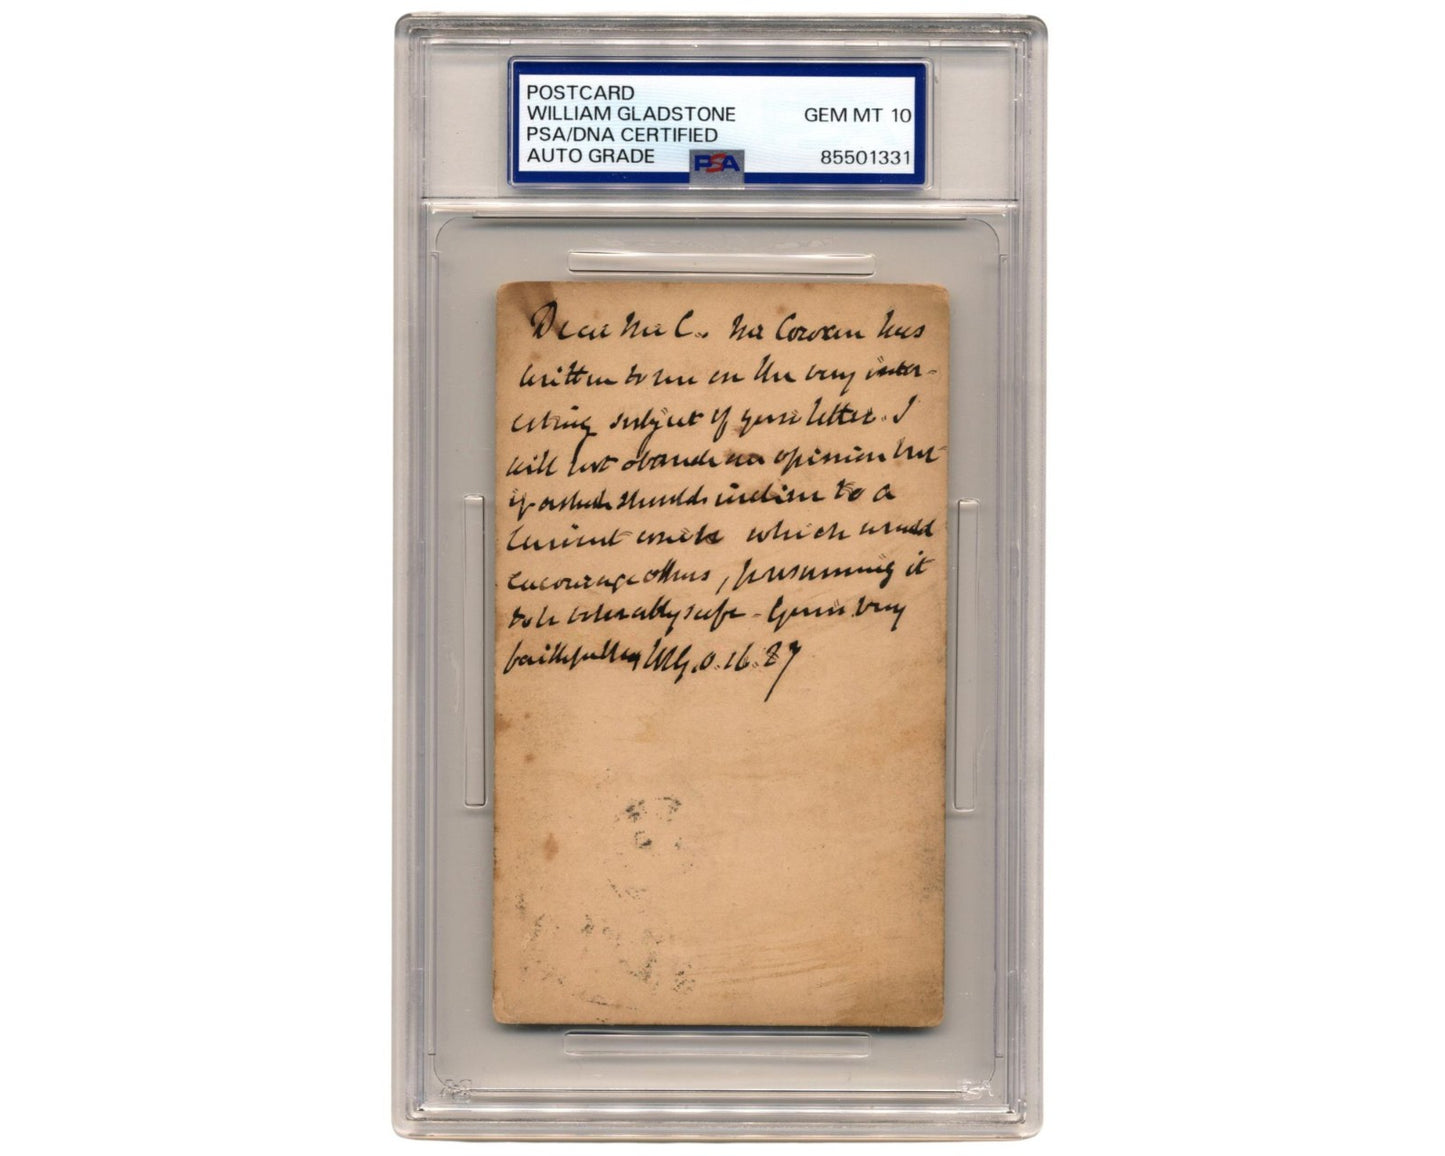 POSTCARD
WILLIAM GLADSTONE
GEM MT 10
PSA/DNA CERTIFIED
AUTO GRADE
PSA
85501331
Dear Mr C. Mr Cowan has
written to me on the very inter-
esting subject of your letter. I
will not obtrude an opinion but
if asked should incline to a
lenient which would
encourage others, presuming it
to be tolerably safe - Yours very
faithfully WG. O. 16. 87